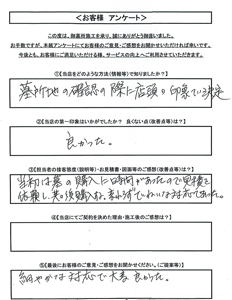 <お客様 アンケート>
この度は、御墓所施工を承り、誠にありがとう御座いました。
お手数ですが、本紙アンケートにてお客様のご意見・ご感想をお聞かせいただければ幸いです。
今後とも、お客様にご満足いただける様、サービスの向上へご利用させていただきます。
①【当店をどのような方法(情報等)で知りましたか?】
墓所地の確認の際に店頭の印象で決定
②【当店の第一印象はいかがでしたか? 良くない点(改善点等)は?】
良かった。
③【担当者の接客態度(説明等)・お見積書・図面等のご感想(改善点等)は?】
当初は墓の購入に時間があったので見積を
依頼し、
対応でした。
④【当店にてご契約を決めた理由・施工後のご感想は?】
⑤【最後にお客様のご意見・ご感想をお聞かせください。(ご提案等)】
細やかな対応で大変良かった。